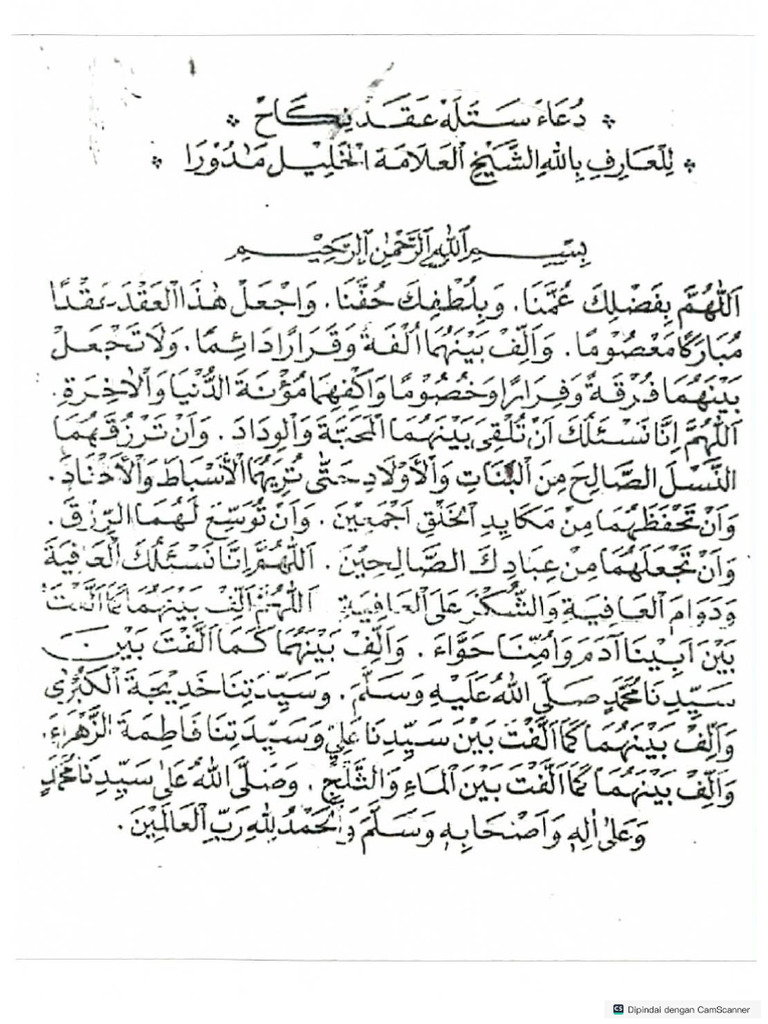 دُعَاءْ سَتَلَهْ عَقَدْ نِكَاحْ
لِلْعَارِفِ بِاللهِ الشَّيْخِ الْعَلَّامَةِ الْخَلِيْل مَادُوْرَا
بِسْمِ اللهِ الرَّحْمٰنِ الرَّحِيْمِ
اَللّٰهُمَّ بِفَضْلِكَ عُمَّنَا. وَبِلُطْفِكَ حُفَّنَا. وَاجْعَلْ هٰذَا الْعَقْدَ عَقْدًا
مُبَارَكًا مَعْصُوْمًا. وَاَلِّفْ بَيْنَهُمَا اُلْفَةً وَقَرَارًا دَائِمًا. وَلَا تَجْعَلْ
بَيْنَهُمَا فُرْقَةً وَفِرَارًا وَخُصُوْمًا وَاكْفِهِمَا مُؤْنَةَ الدُّنْيَا وَالْاٰخِرَةِ.
اَللّٰهُمَّ اِنَّا نَسْئَلُكَ اَنْ تُلْقِيَ بَيْنَهُمَا الْمَحَبَّةَ وَالْوِدَادَ. وَاَنْ تَرْزُقَهُمَا
النَّسْلَ الصَّالِحَ مِنَ الْبَنَاتِ وَالْاَوْلَادِ حَتّٰى تُرِيَهُمَا الْاَسْبَاطَ وَالْاَحْفَادَ.
وَاَنْ تَحْفَظَهُمَا مِنْ مَكَايِدِ الْخَلْقِ اَجْمَعِيْنَ. وَاَنْ تُوَسِّعَ لَهُمَا الرِّزْقَ.
وَاَنْ تَجْعَلَهُمَا مِنْ عِبَادِكَ الصَّالِحِيْنَ. اَللّٰهُمَّ اِنَّا نَسْئَلُكَ الْعَافِيَةَ
وَدَوَامَ الْعَافِيَةِ وَالشُّكْرَ عَلَى الْعَافِيَةِ اَللّٰهُمَّ اَلِّفْ بَيْنَهُمَا كَمَا اَلَّفْتَ
بَيْنَ اَبِيْنَا آدَمَ وَاُمِّنَا حَوَّاءَ. وَاَلِّفْ بَيْنَهُمَا كَمَا اَلَّفْتَ بَيْنَ
سَيِّدِنَا مُحَمَّدٍ صَلَّى اللهُ عَلَيْهِ وَسَلَّمَ. وَسَيِّدَتِنَا خَدِيْجَةَ الْكُبْرٰى
وَاَلِّفْ بَيْنَهُمَا كَمَا اَلَّفْتَ بَيْنَ سَيِّدِنَا عَلِيٍّ وَسَيِّدَتِنَا فَاطِمَةَ الزَّهْرَاءِ.
وَاَلِّفْ بَيْنَهُمَا كَمَا اَلَّفْتَ بَيْنَ الْمَاءِ وَالثَّلْجِ. وَصَلَّى اللهُ عَلٰى سَيِّدِنَا مُحَمَّدٍ
وَعَلٰى اٰلِهِ وَاَصْحَابِهِ وَسَلَّمَ وَالْحَمْدُ لِلّٰهِ رَبِّ الْعَالَمِيْنَ.
CS Dipindai dengan CamScanner